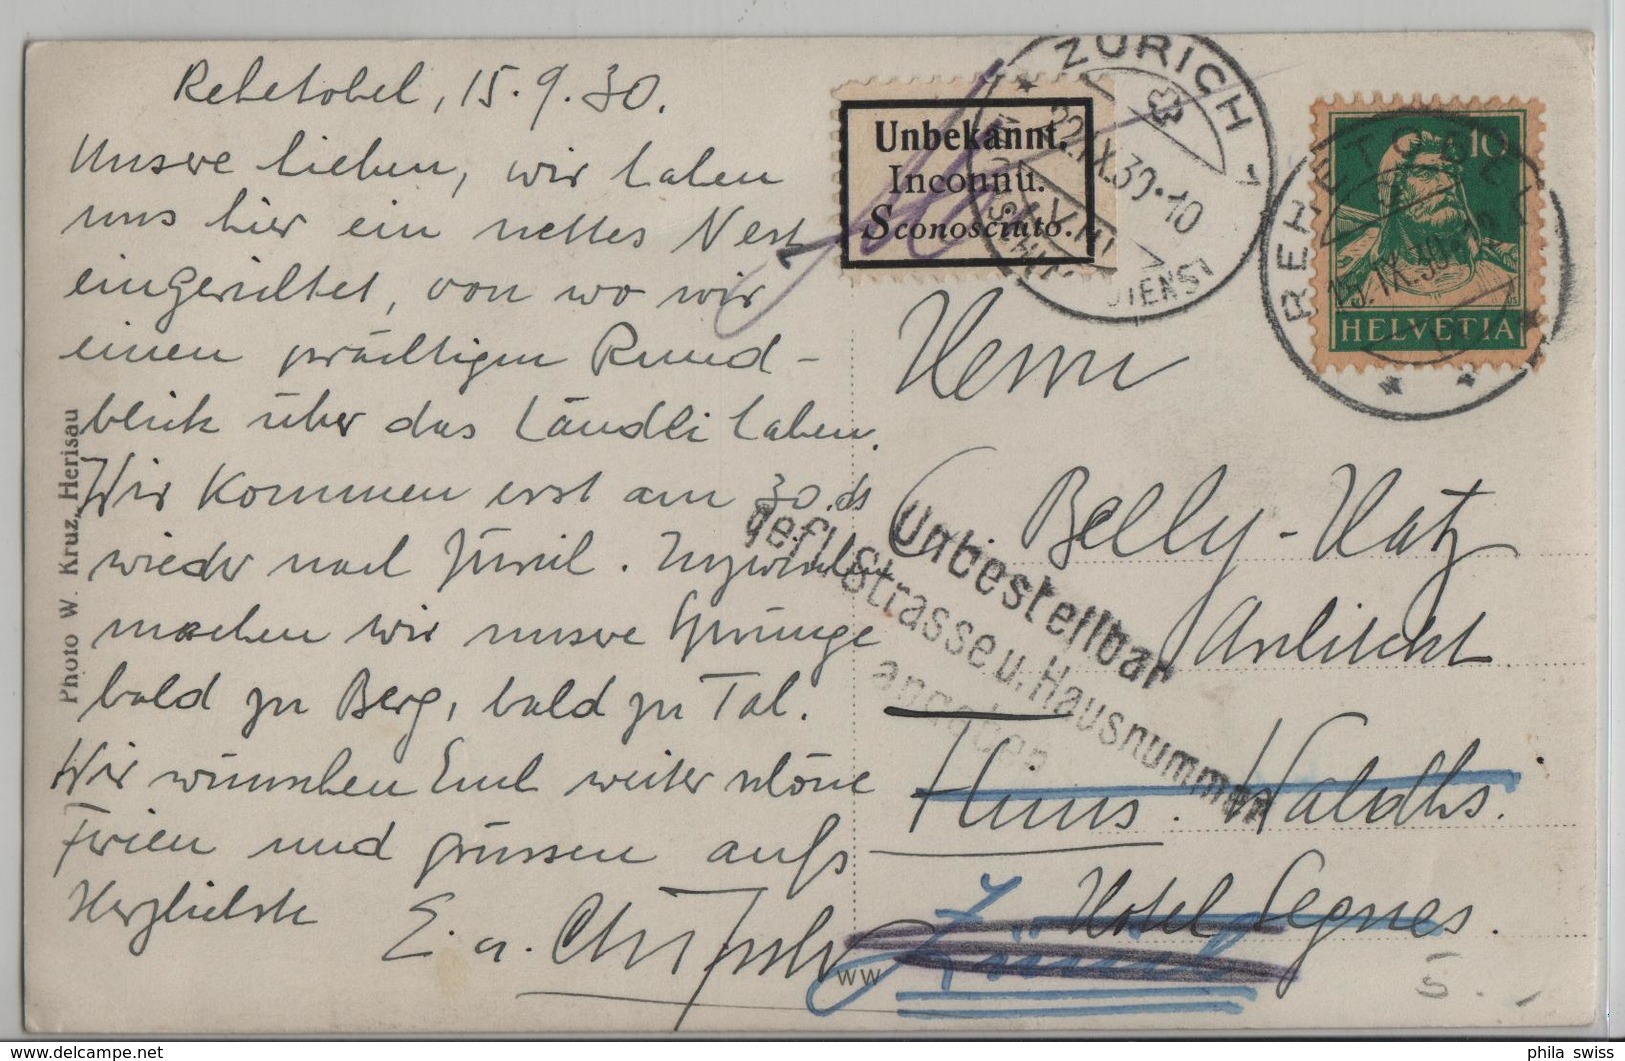 Rehetobel, 15.9.30.
Unsere lieben, wir haben
uns hier ein nettes Nest
eingerichtet, von wo wir
einen prächtigen Rund-
blick über das Ländli haben.
Wir kommen erst am 30. ds
wieder nach Zürich. Inzwischen
machen wir unsere Sprünge
bald zu Berg, bald zu Tal.
Wir wünschen Euch weiter schöne
Ferien und grüssen aufs
Herzlichste
E. u.
Photo W. Kruz, Herisau
Unbekannt.
Inconnu.
Sconosciuto.
ZÜRICH 1
30.IX.30-10
DIENST
REHETOBEL
15.IX.30
10
HELVETIA
Herrn
Belly-Hatz
Architekt
Flims. Waldhs.
Hotel Segnes.
Zürich
Unbestellbar
gefl. Strasse u. Hausnummer
angeben
WW
5.
www.delcampe.net
phila_swiss